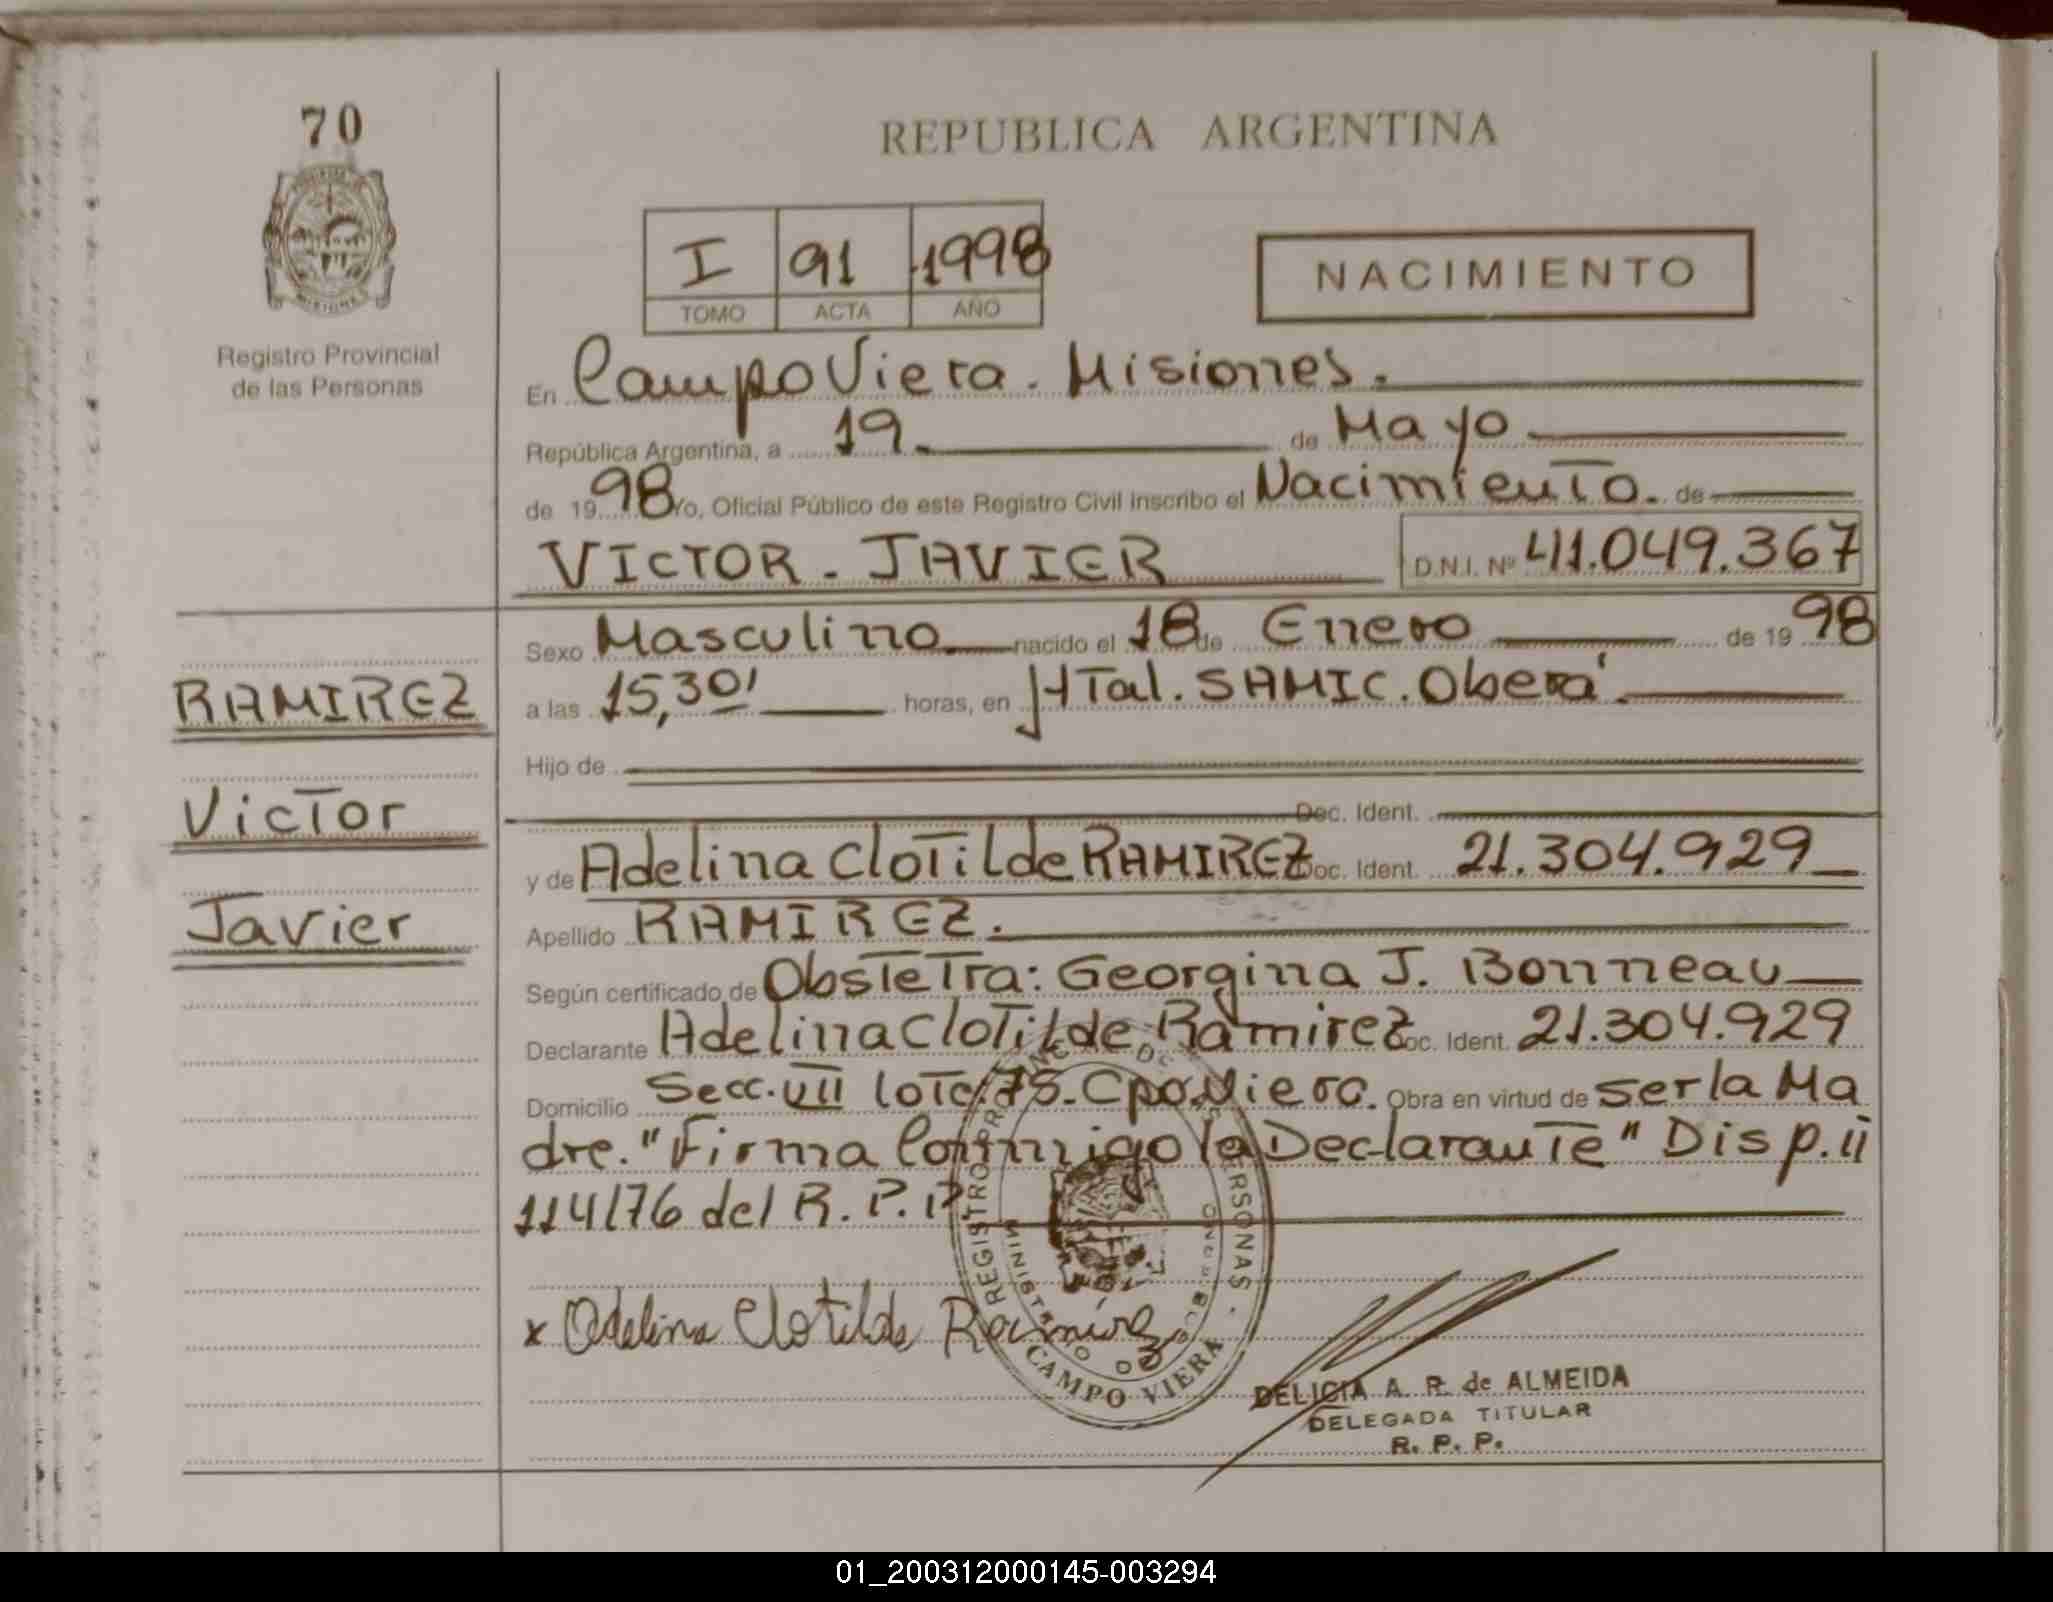 70
REPUBLICA ARGENTINA
I 91 1998
TOMO ACTA AÑO
NACIMIENTO
Registro Provincial
de las Personas
En Campo Viera. Misiones.
República Argentina, a 19 de Mayo
de 1998 Yo, Oficial Público de este Registro Civil inscribo el Nacimiento. de
VICTOR - JAVIER D.N.I. Nº 41.049.367
Sexo Masculino nacido el 18 de Enero de 1998
RAMIREZ
a las 15,30' horas, en HTal. SAMIC. Oberá
Hijo de
Victor
Doc. Ident.
y de Adelina Clotilde RAMIREZ Doc. Ident. 21.304.929
Javier
Apellido RAMIREZ.
Según certificado de Obstetra: Georgina J. Bonneau
Declarante Adelina Clotilde Ramirez Doc. Ident. 21.304.929
Domicilio Secc. VII lote 75. Cpo Viera. Obra en virtud de ser la Ma
dre. "Firma Conmigo la Declarante" Disp. ii
114/76 del R.P.P
x Adelina Clotilde Ramirez
CAMPO VIERA
DELICIA A. R. de ALMEIDA
DELEGADA TITULAR
R. P. P.
01_200312000145-003294